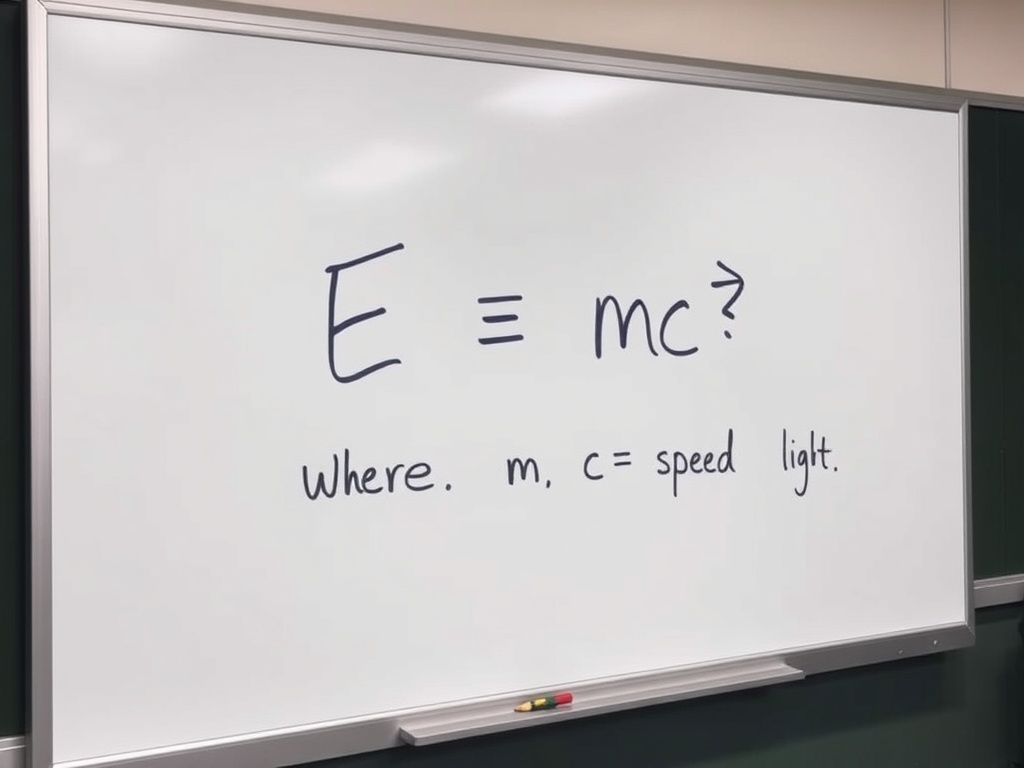 E ≡ mc?
Where. m, c= speed light.